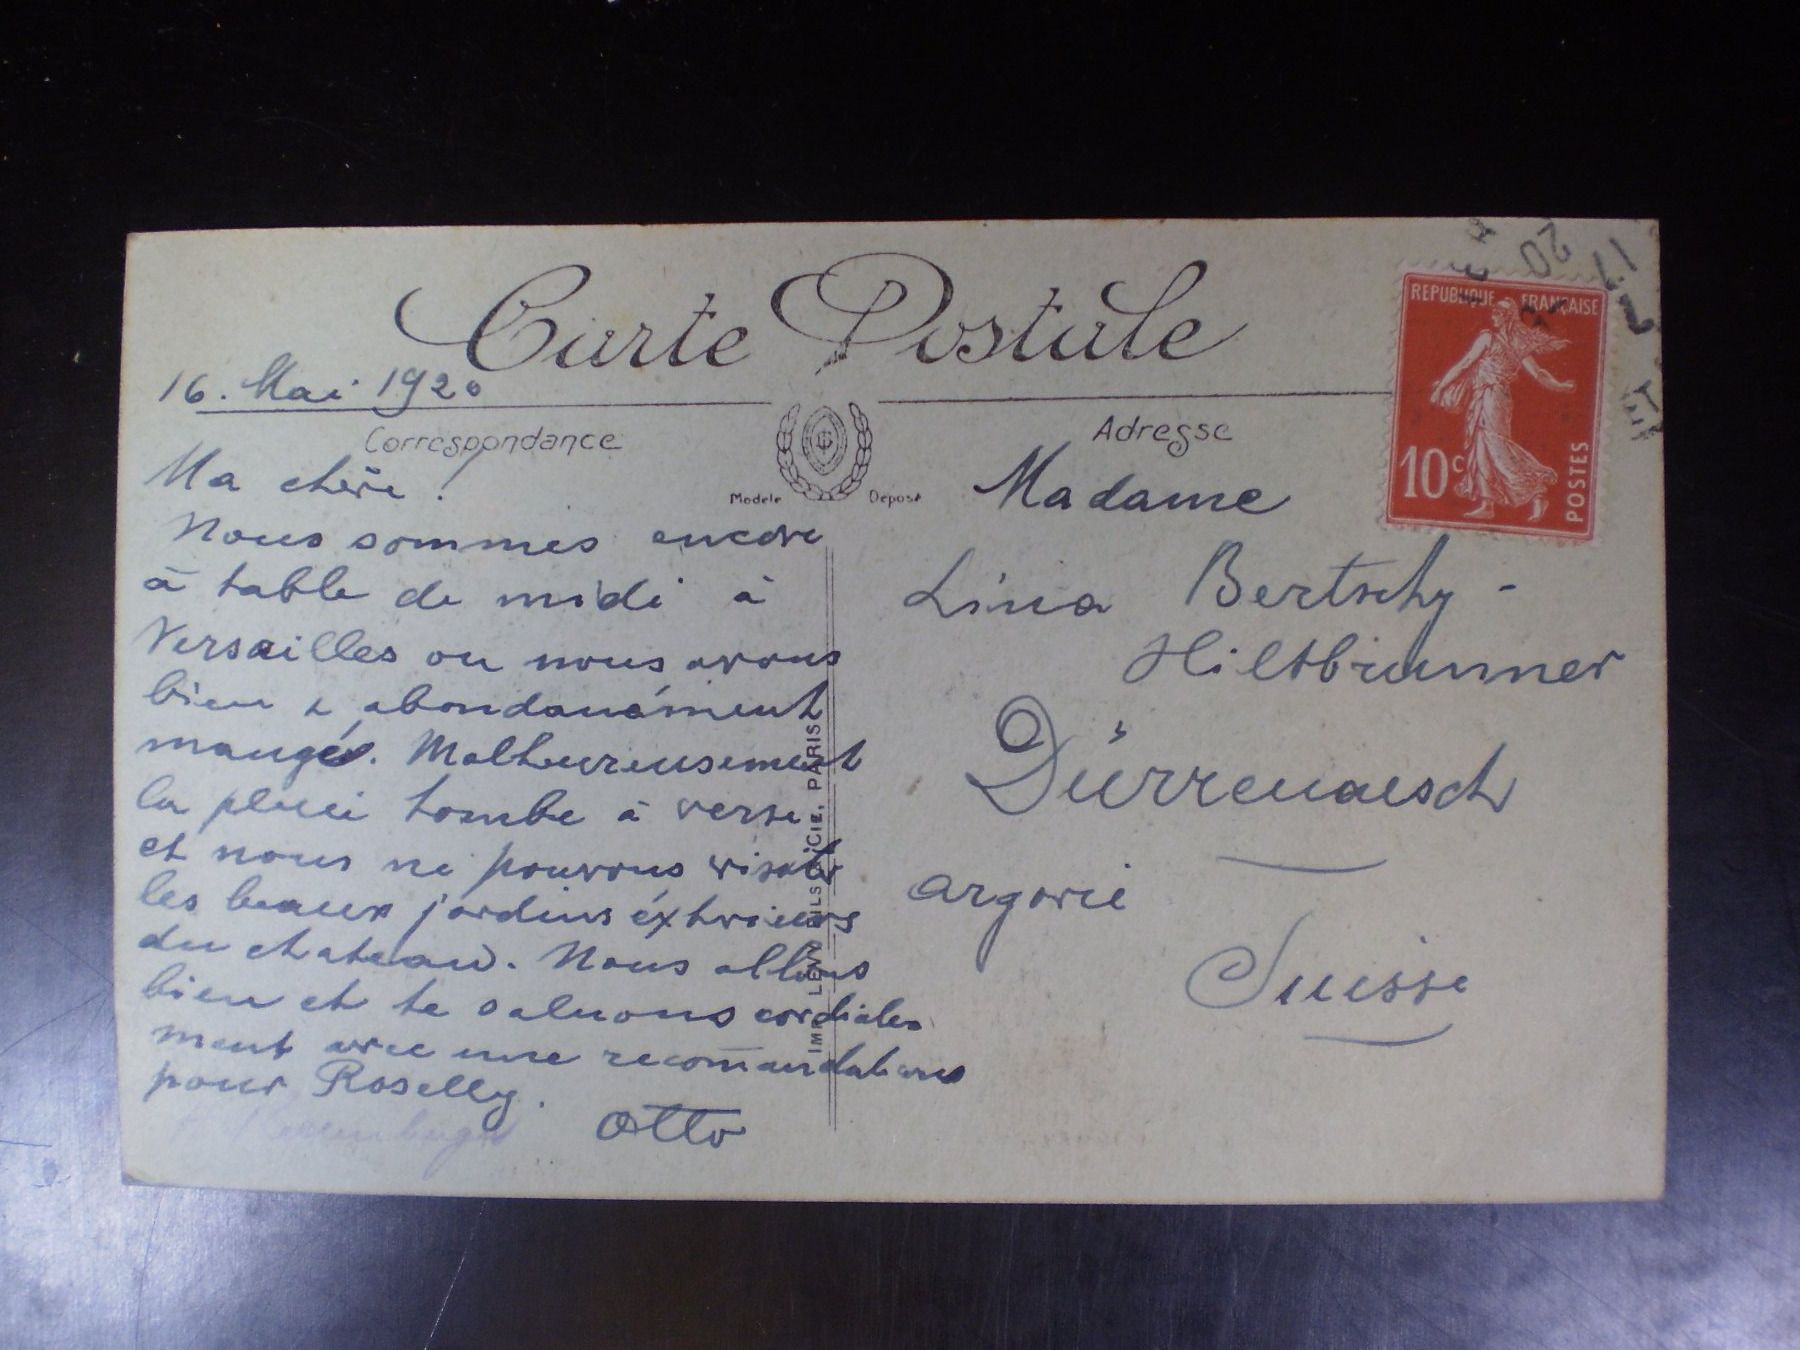 Carte Postale
16. Mai 1920
Correspondance
Modele Deposé
Ma chère!
Nous sommes encore
à table de midi à
Versailles ou nous avons
bien & abondanément
mangé. Malheureusement
la pluie tombe à verse
et nous ne pouvons visiter
les beaux jardins éxtrieurs
du chateau. Nous allons
bien et te saluons cordiale
ment avec une recom̄andations
pour Roselly.
Otto
IMP. LEVY FILS & CIE, PARIS
Adresse
Madame
Lina Bertschy-
Hiltbrunner
Dürrenaesch
Argovie
Suisse
REPUBLIQUE FRANÇAISE
10c
POSTES
17
20